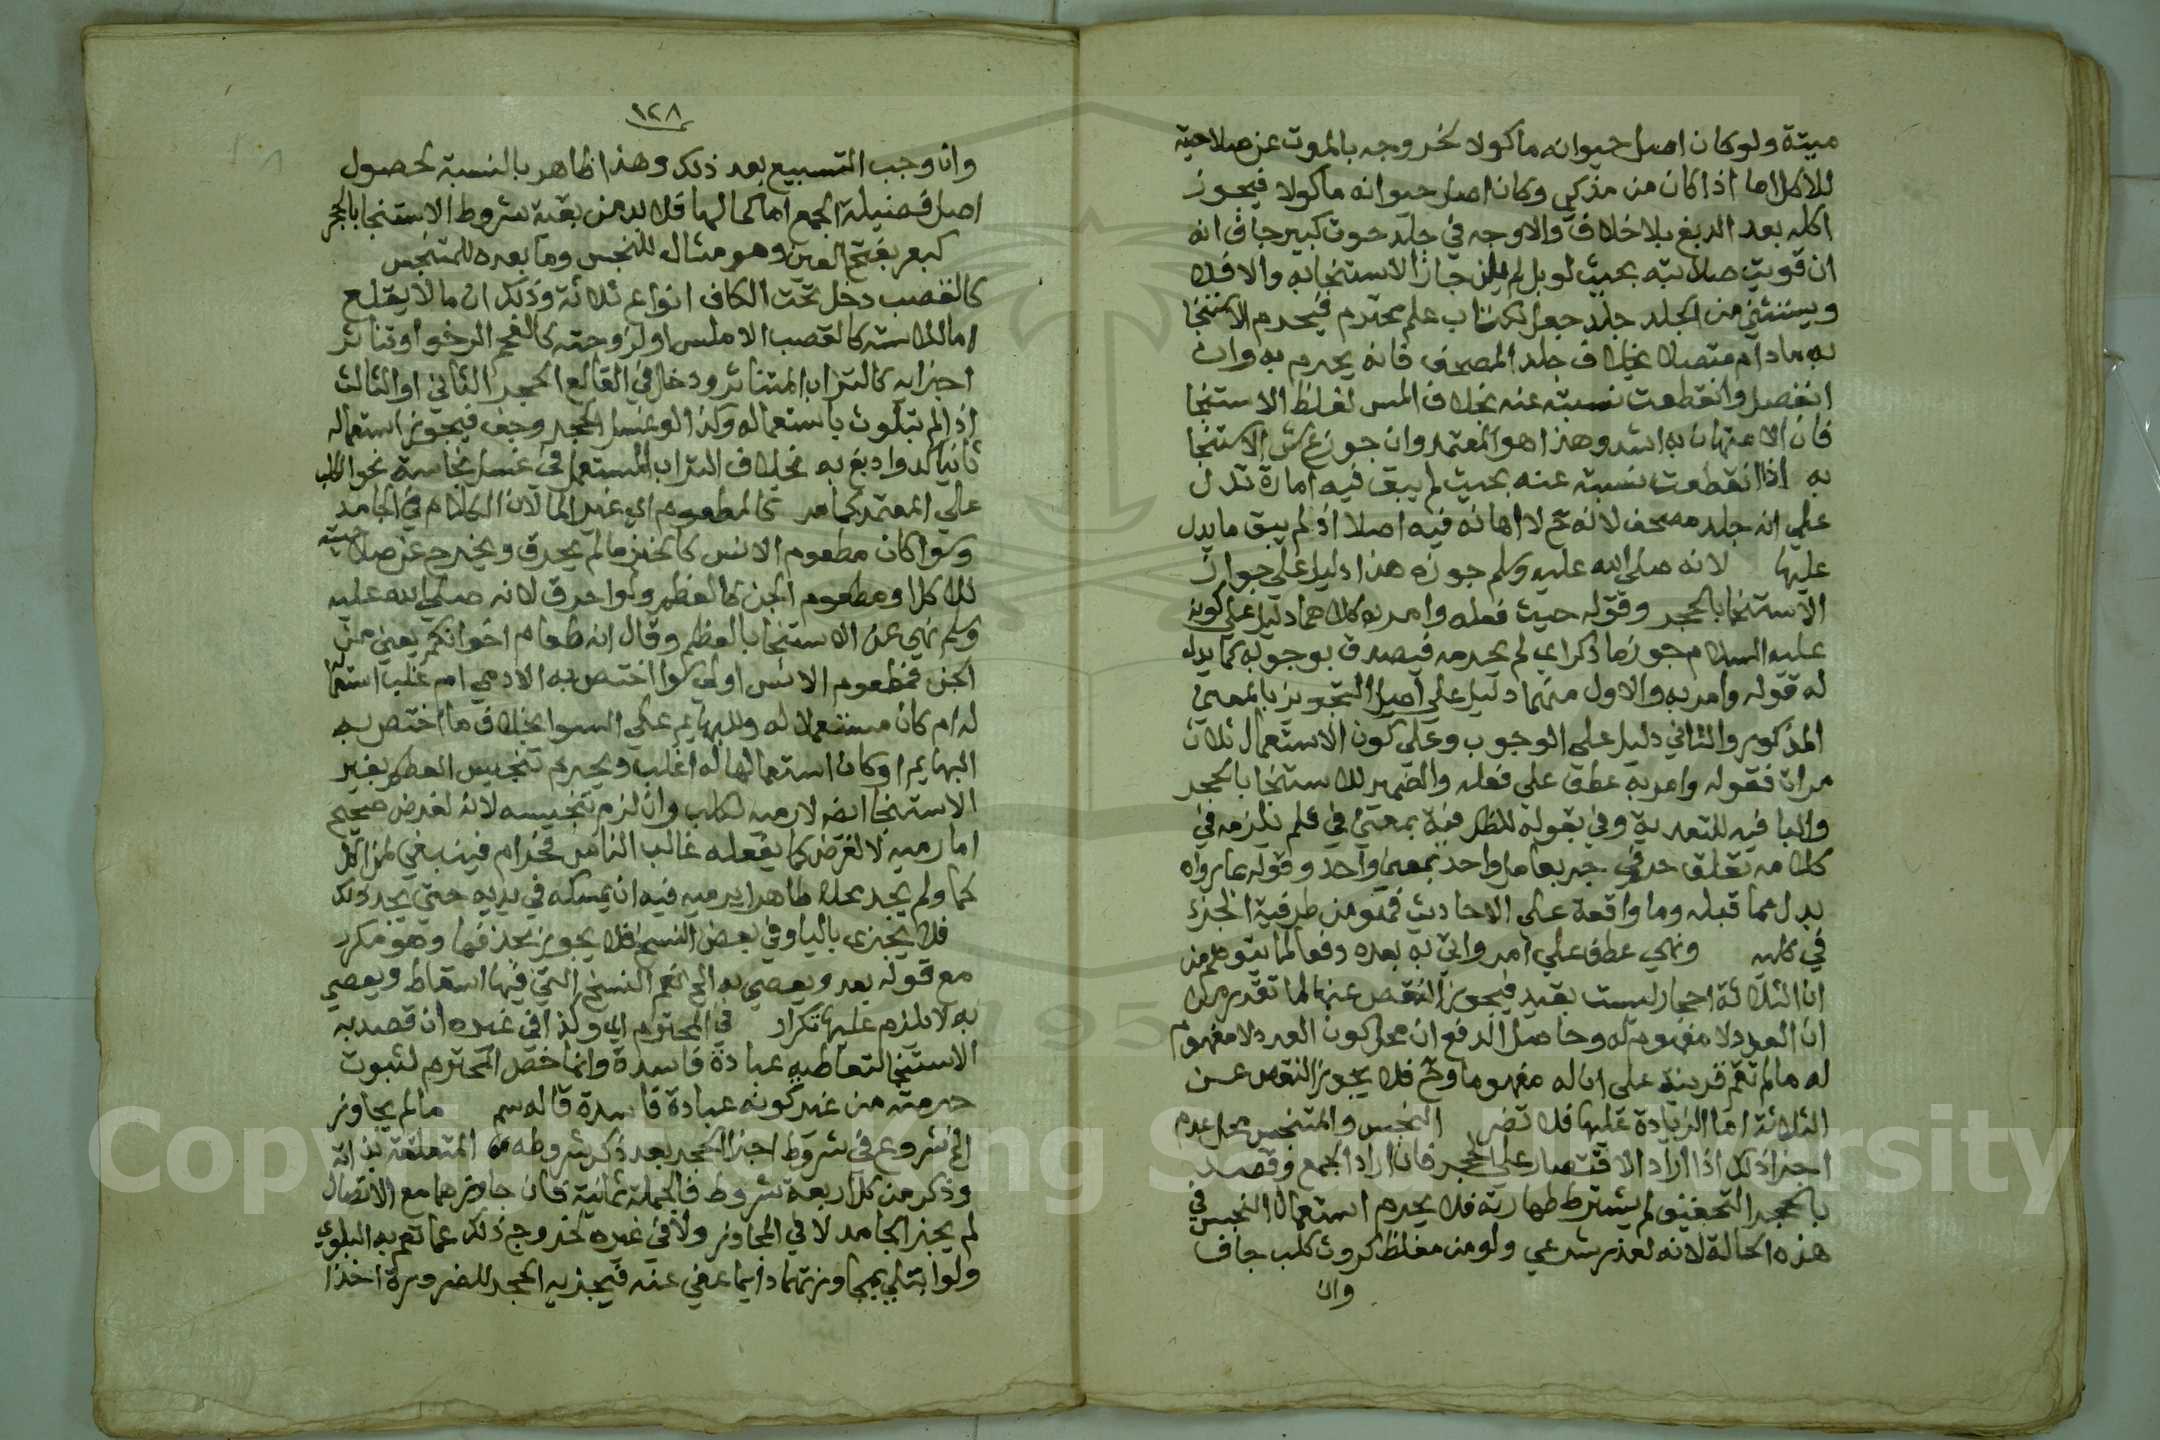 ميتة ولو كان اصل حيوانه ماكولا لخروجه بالموت عن صلاحيته
للاكل اما اذا كان من مذكي وكان اصل حيوانه ماكولا فيجوز
اكله بعد الدبغ بلا خلاف والاوجه في جلد حوت كبير جاف انه
ان قويت صلابته بحيث لو بل لم يلن جاز الاستنجا به والا فلا
ويستثني من الجلد جلد جعل لكتاب علم محترم فيحرم الاستنجا
به مادام متصلا بخلاف جلد المصحف فانه يحرم به وان
انفصل وانقطعت نسبته عنه بخلاف المس لغلظ الاستنجا
فان الامتهان به اشد وهذا هو المعتمد وان جوز ع ش الاستنجا
به اذا انقطعت نسبته عنه بحيث لم يبق فيه امارة تدل
علي انه جلد مصحف لانه ح لا اهانه فيه اصلا اذ لم يبق ما يدل
عليها لانه صلي الله عليه وسلم جوزه هذا دليل علي جواز
الاستنجا بالحجر وقوله حيث فعله وامر به كلاهما دليل علي كونه
عليه السلام جوز ما ذكر اي لم يحرمه فيصدق بوجوبه كما يدل
له قوله وامر به والاول منهما دليل علي اصل التجويز بالمعني
المذكور والثاني دليل علي الوجوب وعلي كون الاستعمال ثلاث
مرات فقوله وامر به عطف علي فعله والضمير للاستنجا بالحجر
والبا فيه للتعدية وفي بقوله للظرفية بمعني في فلم يلزمه في
كلامه تعلق حرفي جر بعامل واحد بمعنى واحد وقوله بما رواه
بدل مما قبله وما واقعة علي الاحاديث فهو من ظرفية الجزء
في كله ونهي عطف علي امر واتي به بعده دفعا لما يتوهم من
ان الثلاثة احجار ليست بقيد فيجوز النقص عنها لما تقدر من
ان العدد لا مفهوم له وحاصل الدفع ان محل كون العدد لا مفهوم
له ما لم تقم قرينة على ان له مفهوما وح فلا يجوز النقص عن
الثلاثة اما الزيادة عليها فلا تضر النجس والمتنجس محل عدم
اجزا ذلك اذا اراد الاقتصار علي الحجر فان اراد الجمع وقصد
بالحجر التخفيف لم يشترط طهارته فلا يحرم استعمال النجس في
هذه الحالة لانه لعذر شرعي ولو من مغلظ كروث كلب جاف
وان
١٢٨
وان وجب التسبيع بعد ذلك وهذا ظاهر بالنسبة لحصول
اصل فضيلة الجمع اما كمالها فلا بد من بقية شروط الاستنجا بالحجر
كبعر بفتح العين وهو مثال للنجس وما بعده للمتنجس
كالقصب دخل تحت الكاف انواع ثلاثة وذلك ان ما لا يقلع
اما لملاسته كالقصب الاملس او لزوجته كالفحم الرخو او تناثر
اجزايه كالتراب المتناثر ودخل في القالع الحجر الثاني او الثالث
اذا لم يتلوث باستعماله وكذا لو غسل الحجر وجف فيجوز استعماله
ثانيا كدوا دبغ به بخلاف التراب المستعمل في غسل نجاسة نحو الكلب
علي المعتمد كما مر كالمطعوم اي غير الما لان الكلام في الجامد
وسوا كان مطعوم الانس كالخبز ما لم يحرق ويخرج عن صلاحيته
للاكل او مطعوم الجن كالعظم ولو احرق لانه صلي الله عليه
وسلم نهي عن الاستنجا بالعظم وقال انه طعام اخوانكم يعني من
الجن فمطعوم الانس اولي سوا اختص به الادمي ام غلب استعماله
له ام كان مستعملا له وللبهايم علي السوا بخلاف ما اختص به
البهايم او كان استعمالها له اغلب ويحرم تنجيس العظم بغير
الاستنجا ايضا لا رميه لكلب وان لزم تنجيسه لانه لغرض صحيح
اما رميه لا لغرض كما يفعله غالب الناس فحرام فينبغي لمن اكل
لحما ولم يجد محلا طاهرا يرميه فيه ان يمسكه في يديه حتي يجد ذلك
فلا يجزي باليا وفي بعض النسخ فلا يجوز بحذفها وهو مكرر
مع قوله بعد ويعصي به الخ نعم النسخ التي فيها اسقاط ويعصي
به لا يلزم عليها تكرار في المحترم اي وكذا في غيره ان قصد به
الاستنجا لتعاطيه عبادة فاسدة وانما خص المحترم لثبوت
حرمته من غير كونه عبادة فاسدة قاله سم ما لم يجاوز
الخ شروع في شروط اجزا الحجر بعد ذكر شروطه المتعلقة بذاته
وذكر من كل اربعة شروط فالجملة ثمانية فان جاوزهما مع الاتصال
لم يجز الجامد لا في المجاوز ولا في غيره لخروج ذلك عما تعم به البلوي
ولو ابتلي بمجاوزتهما دايما عفي عنه فيجزيه الحجر للضرورة اخذا